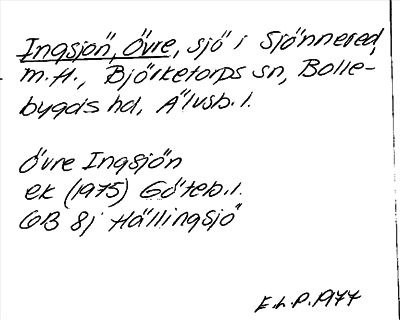 Ingsjön, Övre, sjö i Sjönnered
m.fl., Björketorps sn, Bolle-
bygds hd, Älvsb. l.
Övre Ingsjön
ek (1975) Göteb. l.
6B 8j Hällingsjö
E.L.P. 1977